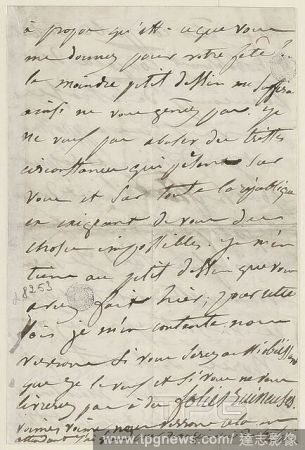 à propos qu'est-ce que vous
me donnez pour votre fête ?
le moindre petit dessin me suffira
ainsi ne vous gênez pas. Je
ne veux pas abuser des tristes
circonstances qui pèsent sur
vous et sur toute la république
en exigeant de vous des
choses impossibles. je m'en
tiens au petit dessin que vous
avez fait hier, pour cette
fois je m'en contente nous
verrons si vous serez
que je le veux et si vous ne vous
livrerez pas à des
nous verrons cela en
attendant
28253
TPG
www.tpgnews.com/達志影像